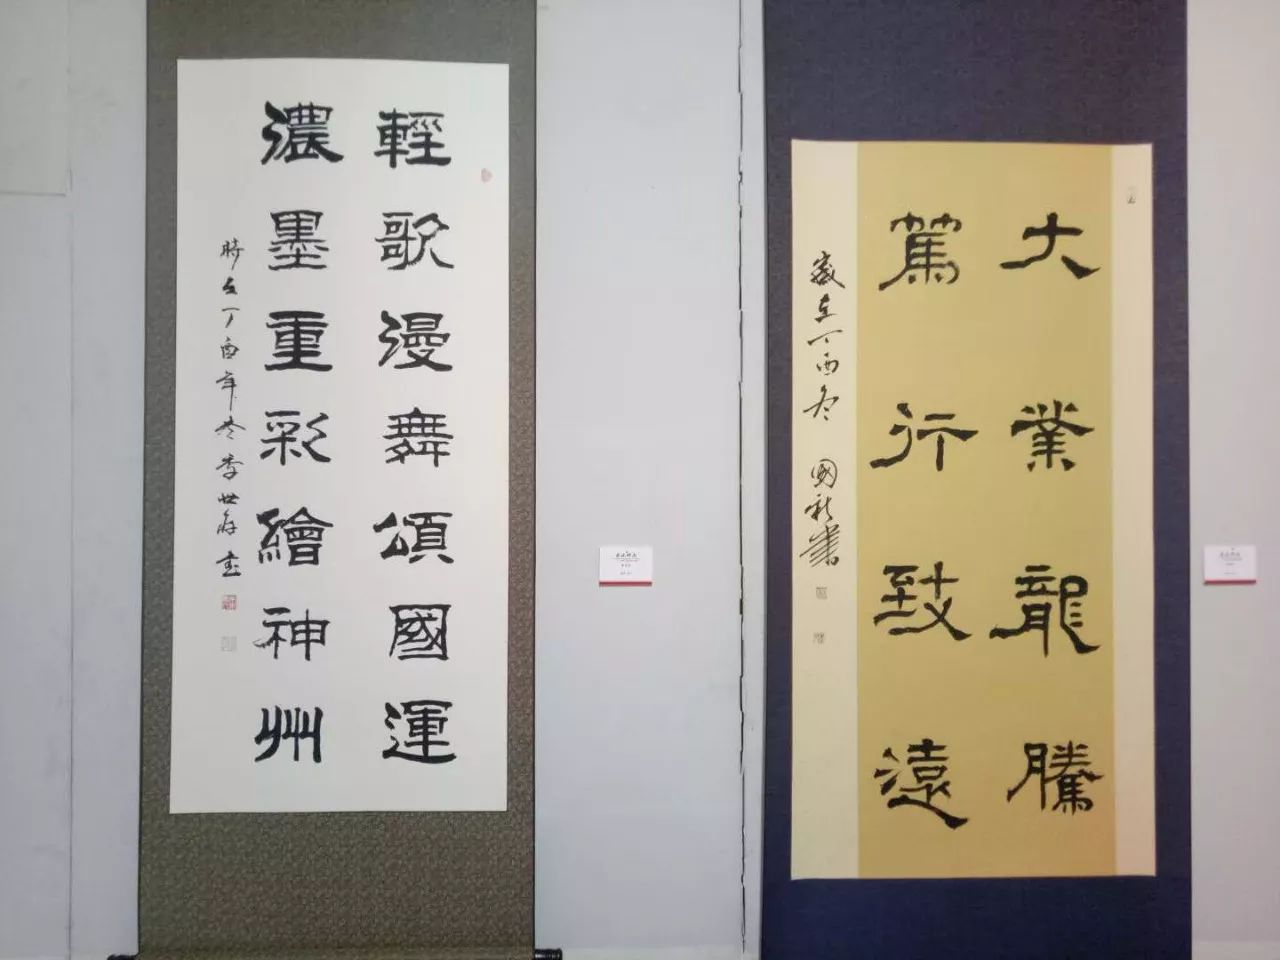 輕歌漫舞頌國運
濃墨重彩繪神州
時在丁酉年冬李世存書
大業龍騰
篤行致遠
歲在丁酉冬 國新書